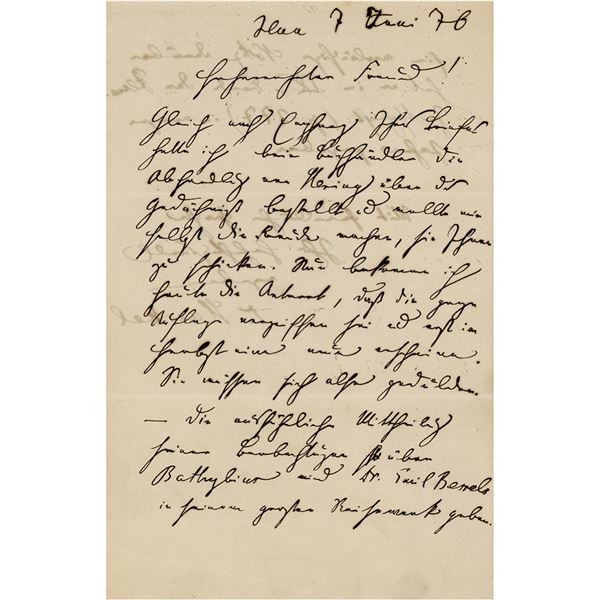 Jena 7 Juni 76
Hochverehrter Freund!
Gleich nach Empfang Ihres Briefes
hatte ich beim Buchhändler die
Abhandlg von Hering über das
Gedächtniß bestellt und wollte mir
selbst die Freude machen, sie Ihnen
zu schicken. Nun bekomme ich
heute die Antwort, daß die ganze
Auflage vergriffen sei und erst im
Herbst eine neue erscheine.
Sie müssen sich also gedulden.
— Die ausführliche Mittheilg
seiner Beobachtungen über
Bathybius wird Dr. Emil Bessels
in seinem großen Reisewerk geben.